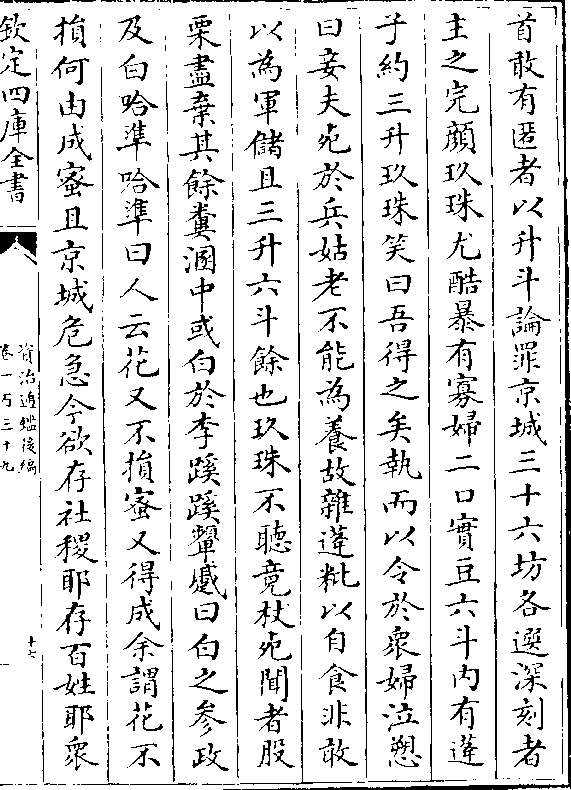 首敢有匿者以升斗論罪京城三十六坊各選深刻者
主之完顔玖珠尤酷暴有寡婦二口實豆六斗内有蓬
子約三升玖珠笑曰吾得之矣執而以令於衆婦泣愬
曰妾夫死於兵姑老不能為養故雜蓬粃以自食非敢
以為軍儲且三升六斗餘也玖珠不聽竟杖死聞者股
栗盡棄其餘糞溷中或白於李蹊蹊顰蹙曰白之參政
及白哈準哈準曰人云花又不損蜜又得成余謂花不
損何由成蜜且京城危急今欲存社稷耶存百姓耶衆
欽定四庫全書
資治通鑑後編
卷一百三十九
十七